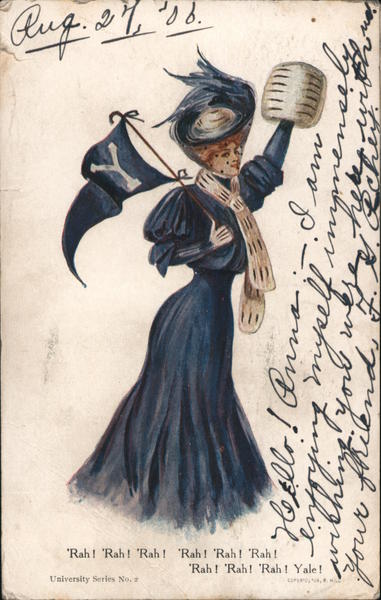 Aug. 27, '06.
Hello! Anna:— I am
enjoying myself immensely
wishing you were here with me.
Your friend,
'Rah! 'Rah! 'Rah! 'Rah! 'Rah! 'Rah!
'Rah! 'Rah! 'Rah! Yale!
University Series No. 2
Y